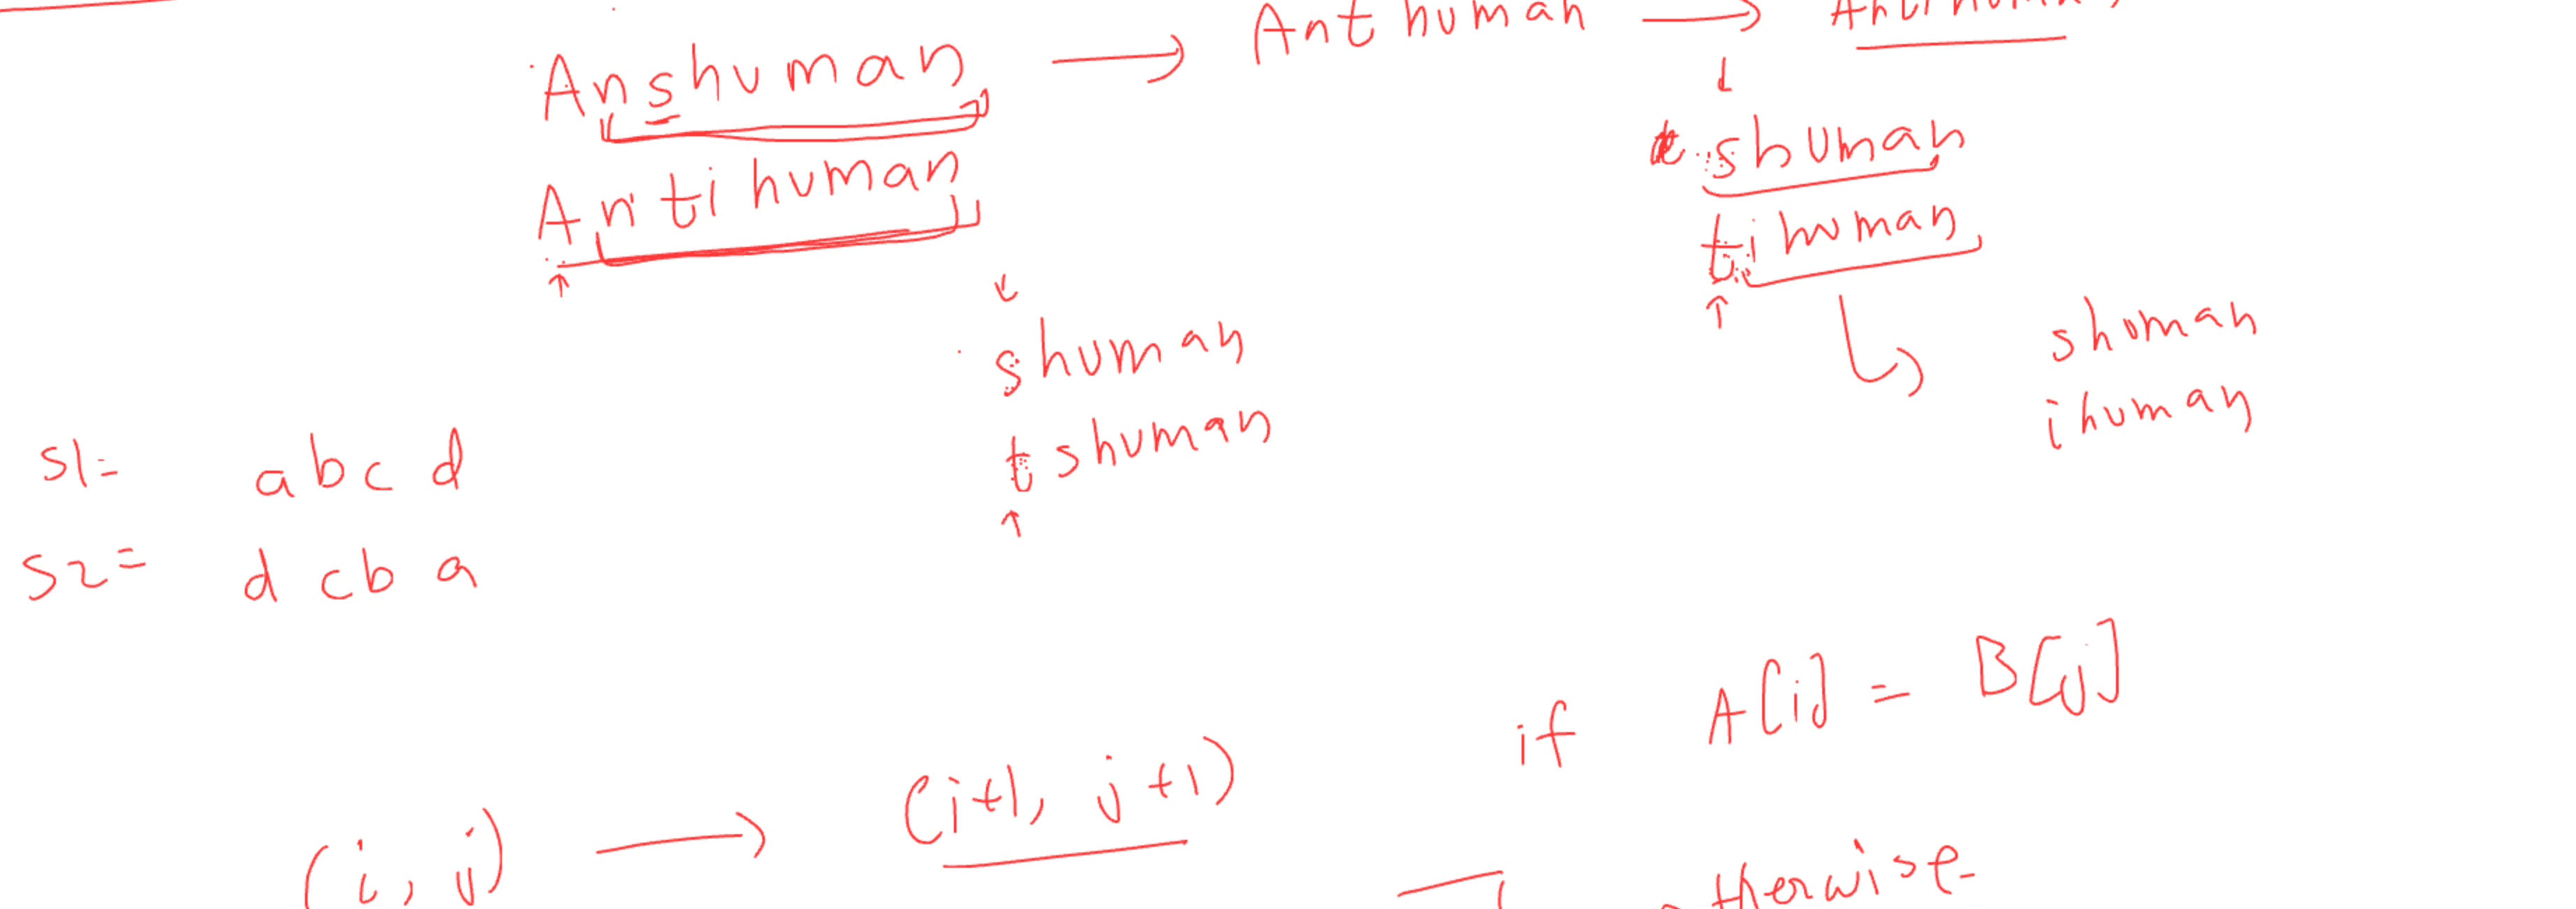 Anshuman → Anthuman →
Antihuman
shuman
tihuman
shuman
tshuman
shuman
ihuman
s1= abcd
s2= dcba
(i, j) → (i+1, j+1) if A[i] = B[j]
otherwise